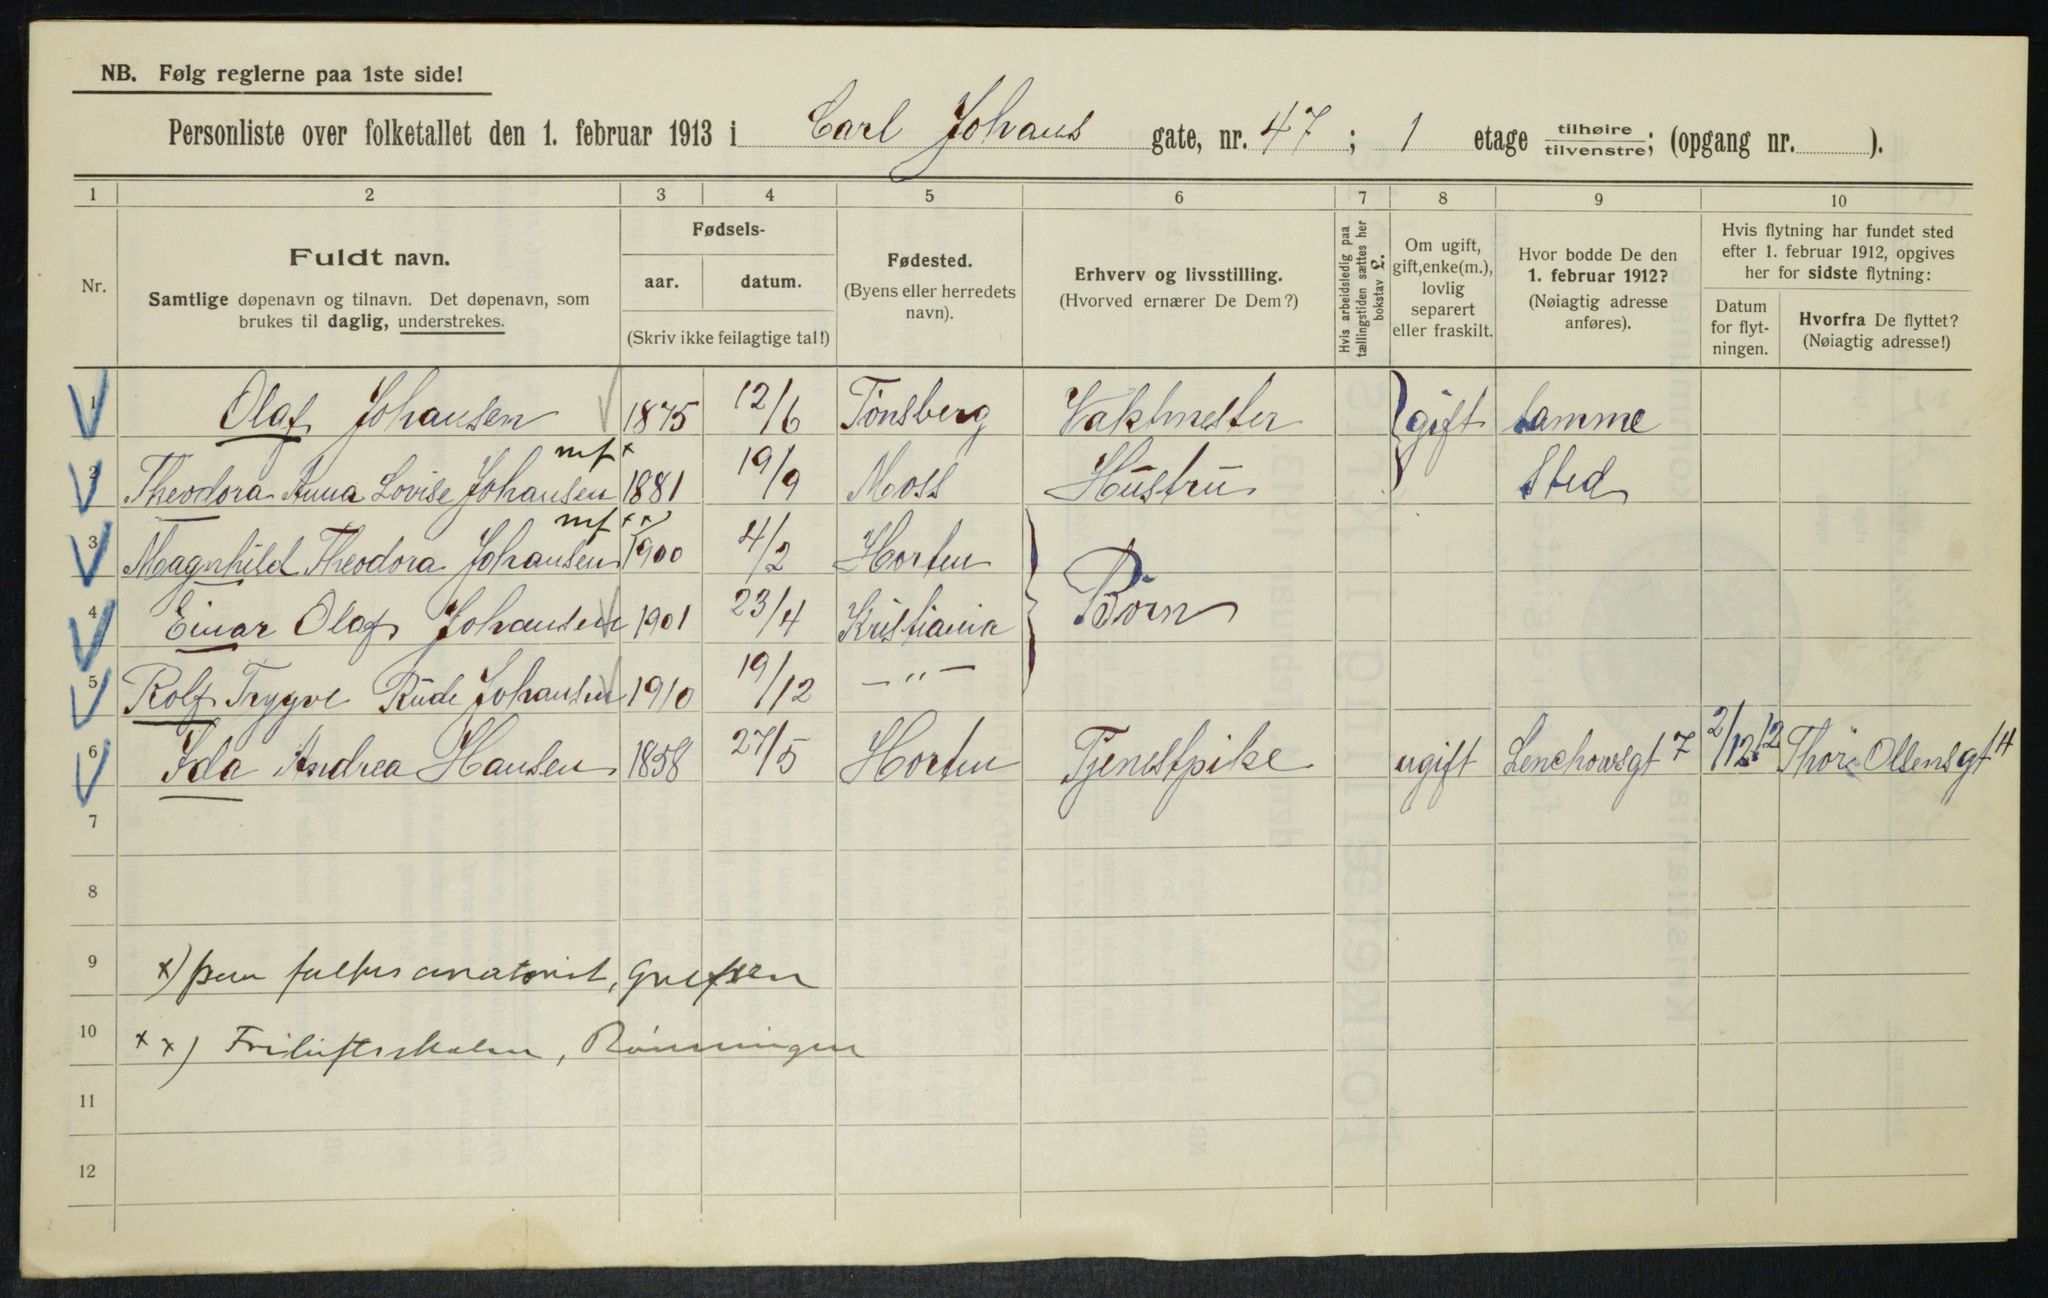 NB. Følg reglerne paa 1ste side!
Personliste over folketallet den 1. februar 1913 i Carl Johans gate, nr. 47; 1 etage tilhøire/tilvenstre; (opgang nr. ).
1 2 3 4 5 6 7 8 9 10
Nr.
Fuldt navn.
Samtlige døpenavn og tilnavn. Det døpenavn, som
brukes til daglig, understrekes.
Fødsels-
aar. datum.
(Skriv ikke feilagtige tal!)
Fødested.
(Byens eller herredets
navn).
Erhverv og livsstilling.
(Hvorved ernærer De Dem?)
Hvis arbeidsledig paa
tællingstiden sættes her
bokstav L.
Om ugift,
gift, enke(m.),
lovlig
separert
eller fraskilt.
Hvor bodde De den
1. februar 1912?
(Nøiagtig adresse
anføres).
Hvis flytning har fundet sted
efter 1. februar 1912, opgives
her for sidste flytning:
Datum
for flyt-
ningen.
Hvorfra De flyttet?
(Nøiagtig adresse!)
1 Olaf Johansen 1875 12/6 Tönsberg Vaktmester gift samme
mf x
2 Theodora Anna Lovise Johansen 1881 19/9 Moss Hustru Sted
mf xx)
3 Magnhild Theodora Johansen 1900 4/2 Horten Börn
4 Einar Olaf Johansen 1901 23/4 Kristiania
5 Rolf Trygve Rude Johansen 1910 19/12 — " —
6 Ida Andrea Hansen 1858 27/5 Horten Tjenestpike ugift Lenchowsgt 7 2/12 12 Thör Olsensgt 4
7
8
9 x) Grefsen
10 xx) Friluftsskolen, Rønningen
11
12